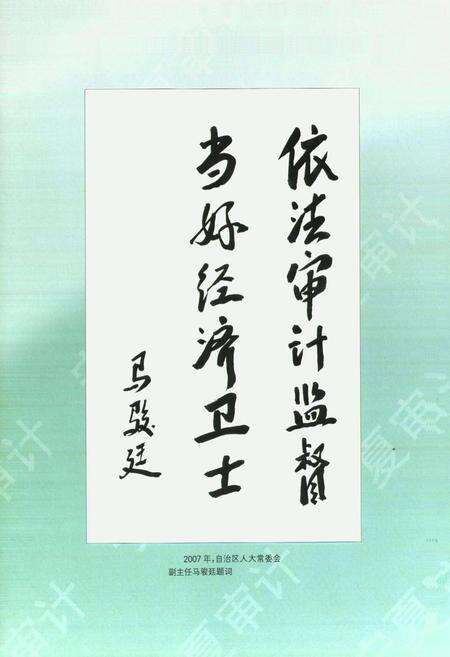 依法审计监督
当好经济卫士
马骏廷
2007年,自治区人大常委会
副主任马骏廷题词
宁夏审计